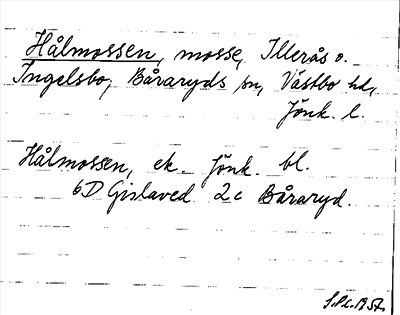 Hålmossen, mosse, Illerås o.
Ingelsbo, Båraryds sn, Västbo hd,
Jönk. l.
Hålmossen, ek. Jönk. bl.
6D Gislaved 2c Båraryd.